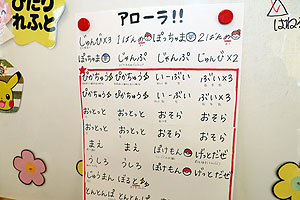 ひだり
れふと
アローラ!!
じゃんぴ×3 1ばんめ ぽっちゃま 2ばんめ
ぽっちゃま じゃんぷ じゃんぷ じゃんぴ×2
ぴかちゅう ぴかちゅう いーぶい ぶい×3
ぴかちゅう ぴかちゅう いーぶい ぶい×3
おっとっと おっとっと おそら おそら
おっとっと おっとっと おそら おそら
まえ まえ ぽけもん げっとだぜ
うしろ うしろ ぽけもん げっとだぜ
じゅうまん ぼると
とんとんぱ とんとんぱ